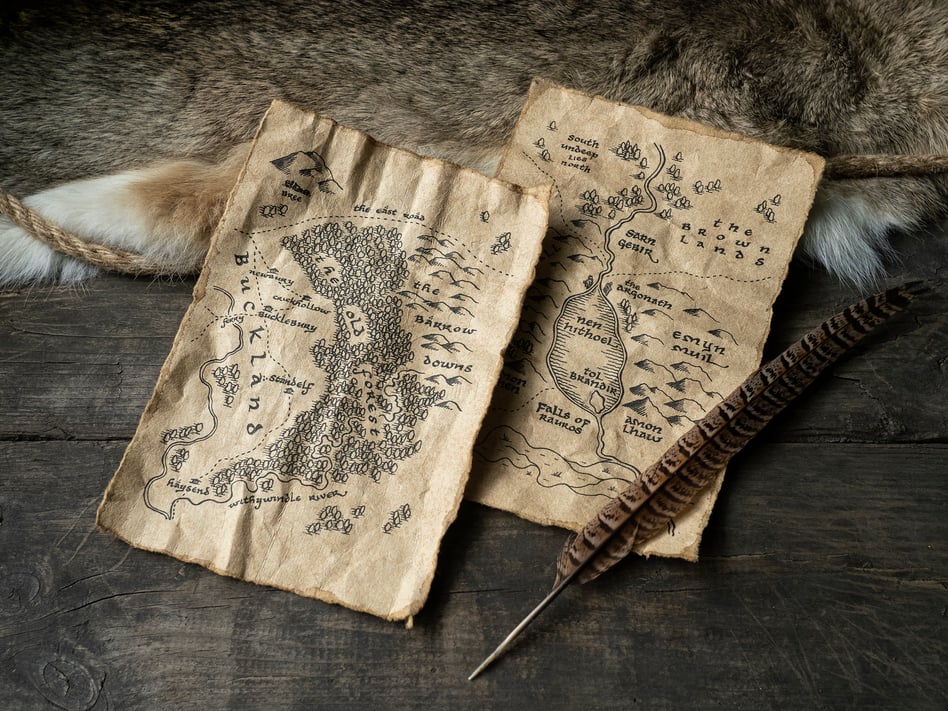 Bree
the East Road
Buckland
newbury
crickhollow
Bucklebury
ferry
standelf
haysend
withywindle River
the
old
forest
the
Barrow
downs
south
undeep
lies
north
the
Brown
Lands
Sarn
Gebir
the
Argonath
nen
hithoel
Emyn
Muil
tol
Brandir
Falls of
rauros
Amon
Lhaw